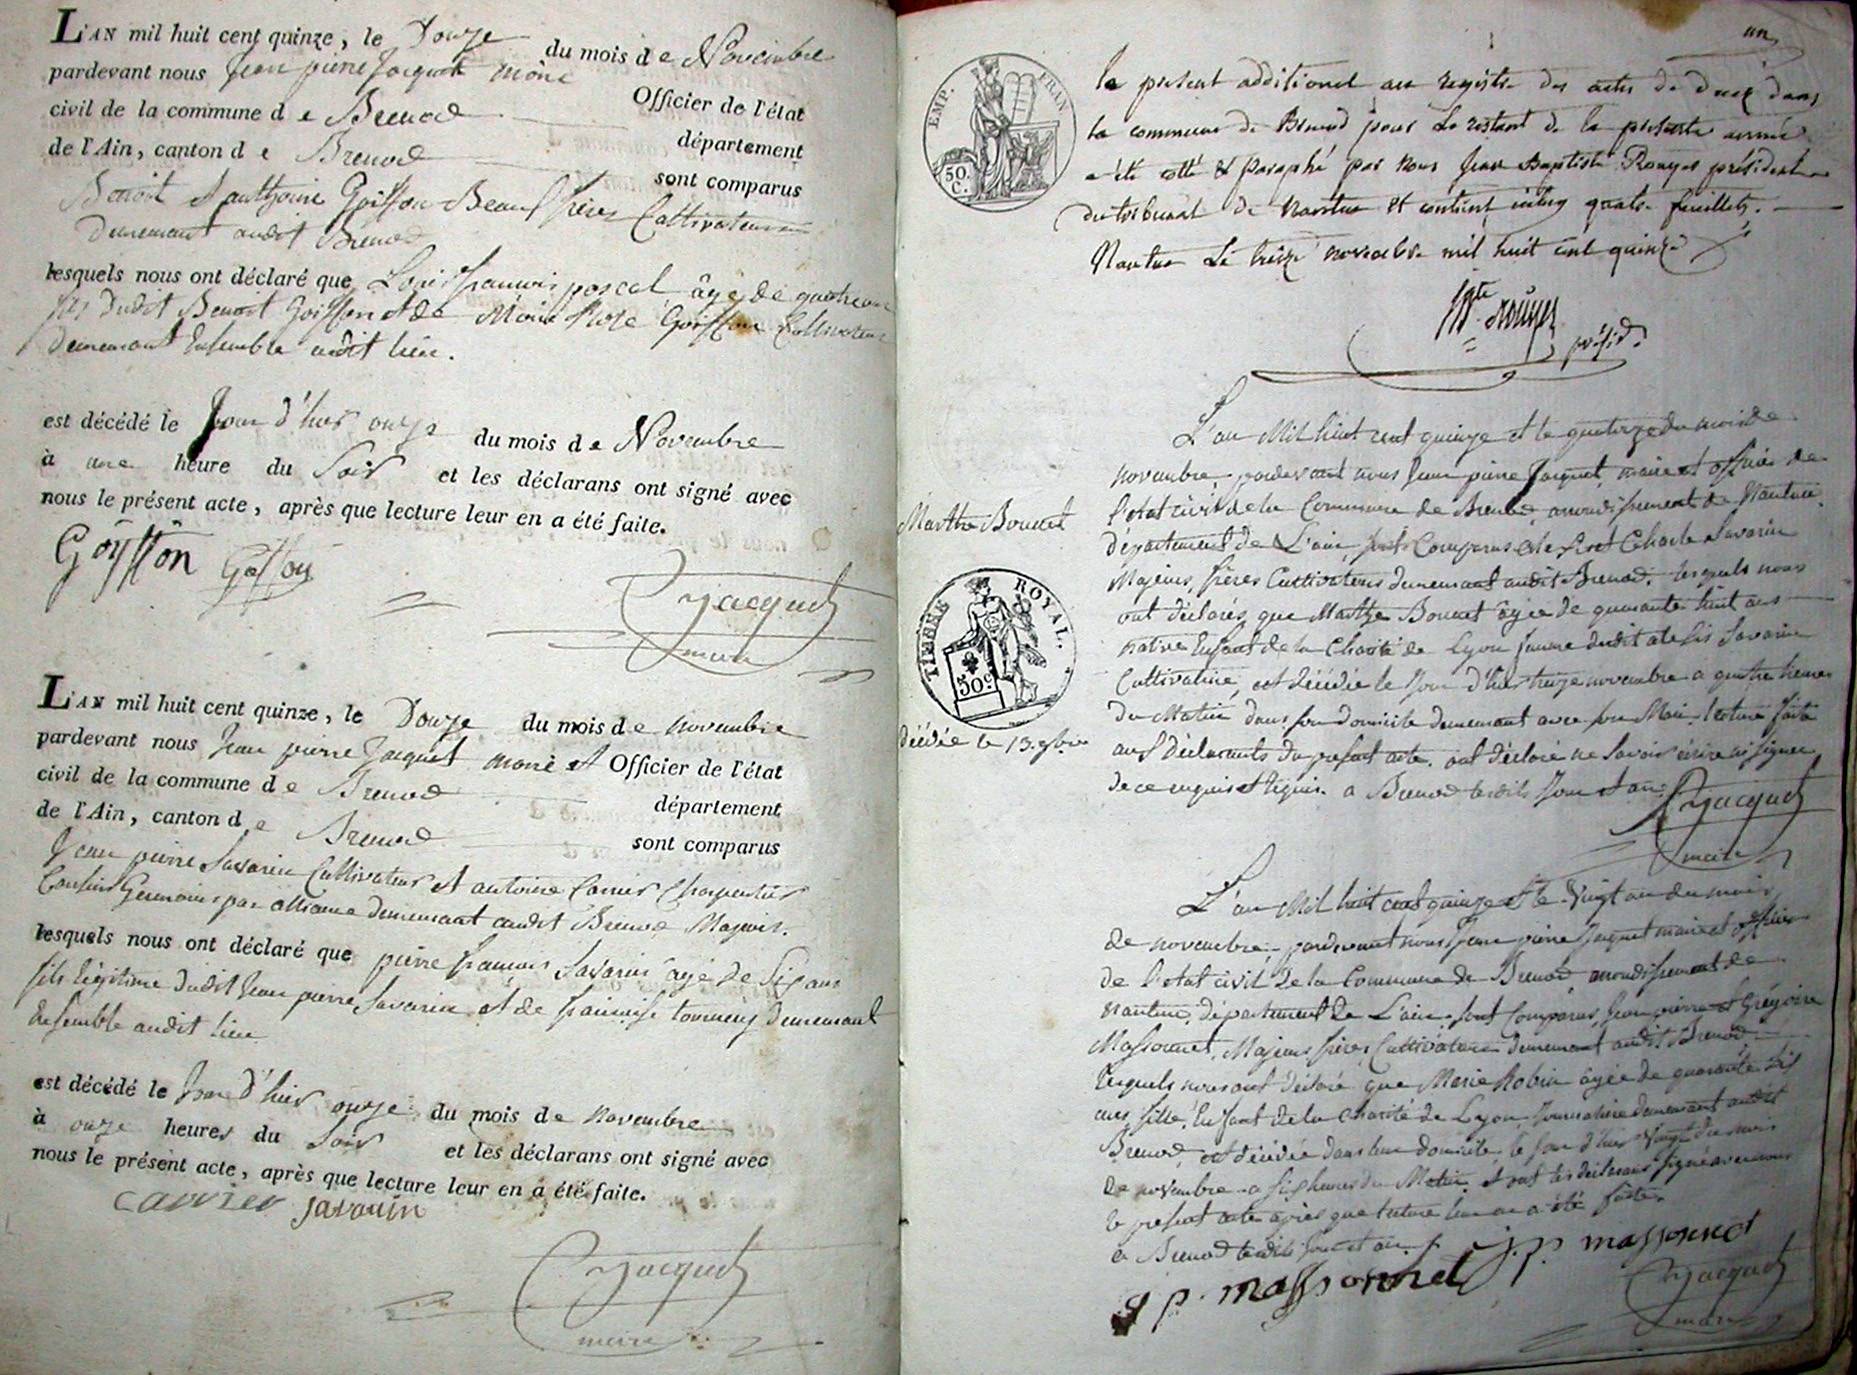 L'AN mil huit cent quinze, le Douze du mois de Novembre
pardevant nous Jean pierre Jacquet maire
Officier de l'état
civil de la commune de Brenod
département
de l'Ain, canton de Brenod
sont comparus
Benoit et anthoine Goiffon Beaufrères Cultivateurs
demeurant audit Brenod
lesquels nous ont déclaré que Louis françois pascal âgé de quatre ans
fils dudit Benoit Goiffon et de Marie Rose Goiffon Cultivateurs
demeurant Ensemble audit lieu.
est décédé le Jour d'hier onze du mois de Novembre
à une heure du Soir et les déclarans ont signé avec
nous le présent acte, après que lecture leur en a été faite.
Goÿffon Goffon
Jacquet
maire
L'AN mil huit cent quinze, le Douze du mois de novembre
pardevant nous Jean pierre Jacquet maire et Officier de l'état
civil de la commune de Brenod
département
de l'Ain, canton de Brenod
sont comparus
Jean pierre Savarin Cultivateur et antoine Carrier Charpentier
Cousins Germains par alliance demeurant audit Brenod Majeurs.
lesquels nous ont déclaré que pierre françois Savarin âgé de Six ans
fils légitime dudit Jean pierre Savarin et de francoise tournery demeurant
Ensemble audit lieu
est décédé le Jour d'hier onze du mois de novembre
à onze heures du Soir et les déclarans ont signé avec
nous le présent acte, après que lecture leur en a été faite.
Carrier Savarin
Jacquet
maire
un
EMP. FRAN
50. C.
le présent additionel au registre des actes de décès dans
la commune de Brenod pour le restant de la présente année
a été cotté & paraphé par nous Jean Baptiste Rouyer président
du tribunal de Nantua et contient quatre feuillets.
Nantua le treize novembre mil huit cent quinze
Rouyer
présid.
L'an Mil huit cent quinze et le quatorze du mois de
novembre, pardevant nous Jean pierre Jacquet, maire et officier de
l'état civil de la Commune de Brenod, arrondissement de Nantua
Marthe Bonnet
département de L'ain, sont Comparus et Charle Savarin
Majeurs, frères Cultivateurs demeurant audit Brenod, lesquels nous
ont déclarés que Marthe Bonnet âgée de quarante huit ans
TIMBRE ROYAL.
50c
native Enfant de la Charité de Lyon femme dudit Savarin
Cultivatrice, est décédée le Jour d'hier treize novembre a quatre heures
du Matin dans son domicile demeurant avec son Mari, lecture faite
décédée le 13. 9bre
aux déclarants du présent acte. ont déclaré ne Savoir écrire ni Signer
de ce enquis et requis. a Brenod lesdits Jour et an.
Jacquet
maire
L'an Mil huit cent quinze et le Vingt un du mois
de novembre, pardevant nous Jean pierre Jacquet maire et officier
de l'état civil de la Commune de Brenod arrondissement de
Nantua, département de L'ain. sont Comparus, Jean pierre et Grégoire
Massonnet, Majeurs frères, Cultivateurs demeurant audit Brenod
lesquels nous ont déclaré que Marie Robin âgée de quarante Six
ans fille, Enfant de la Charité de Lyon, Journalière demeurant audit
Brenod, est décédée dans leur domicile, le Jour d'hier Vingt du mois
de novembre a Six heures du Matin et ont les déclarans Signé avec nous
le présent acte après que lecture leur en a été faite.
a Brenod lesdits Jour et an.
j. p. massonnet
j p. massonnet
Jacquet
maire